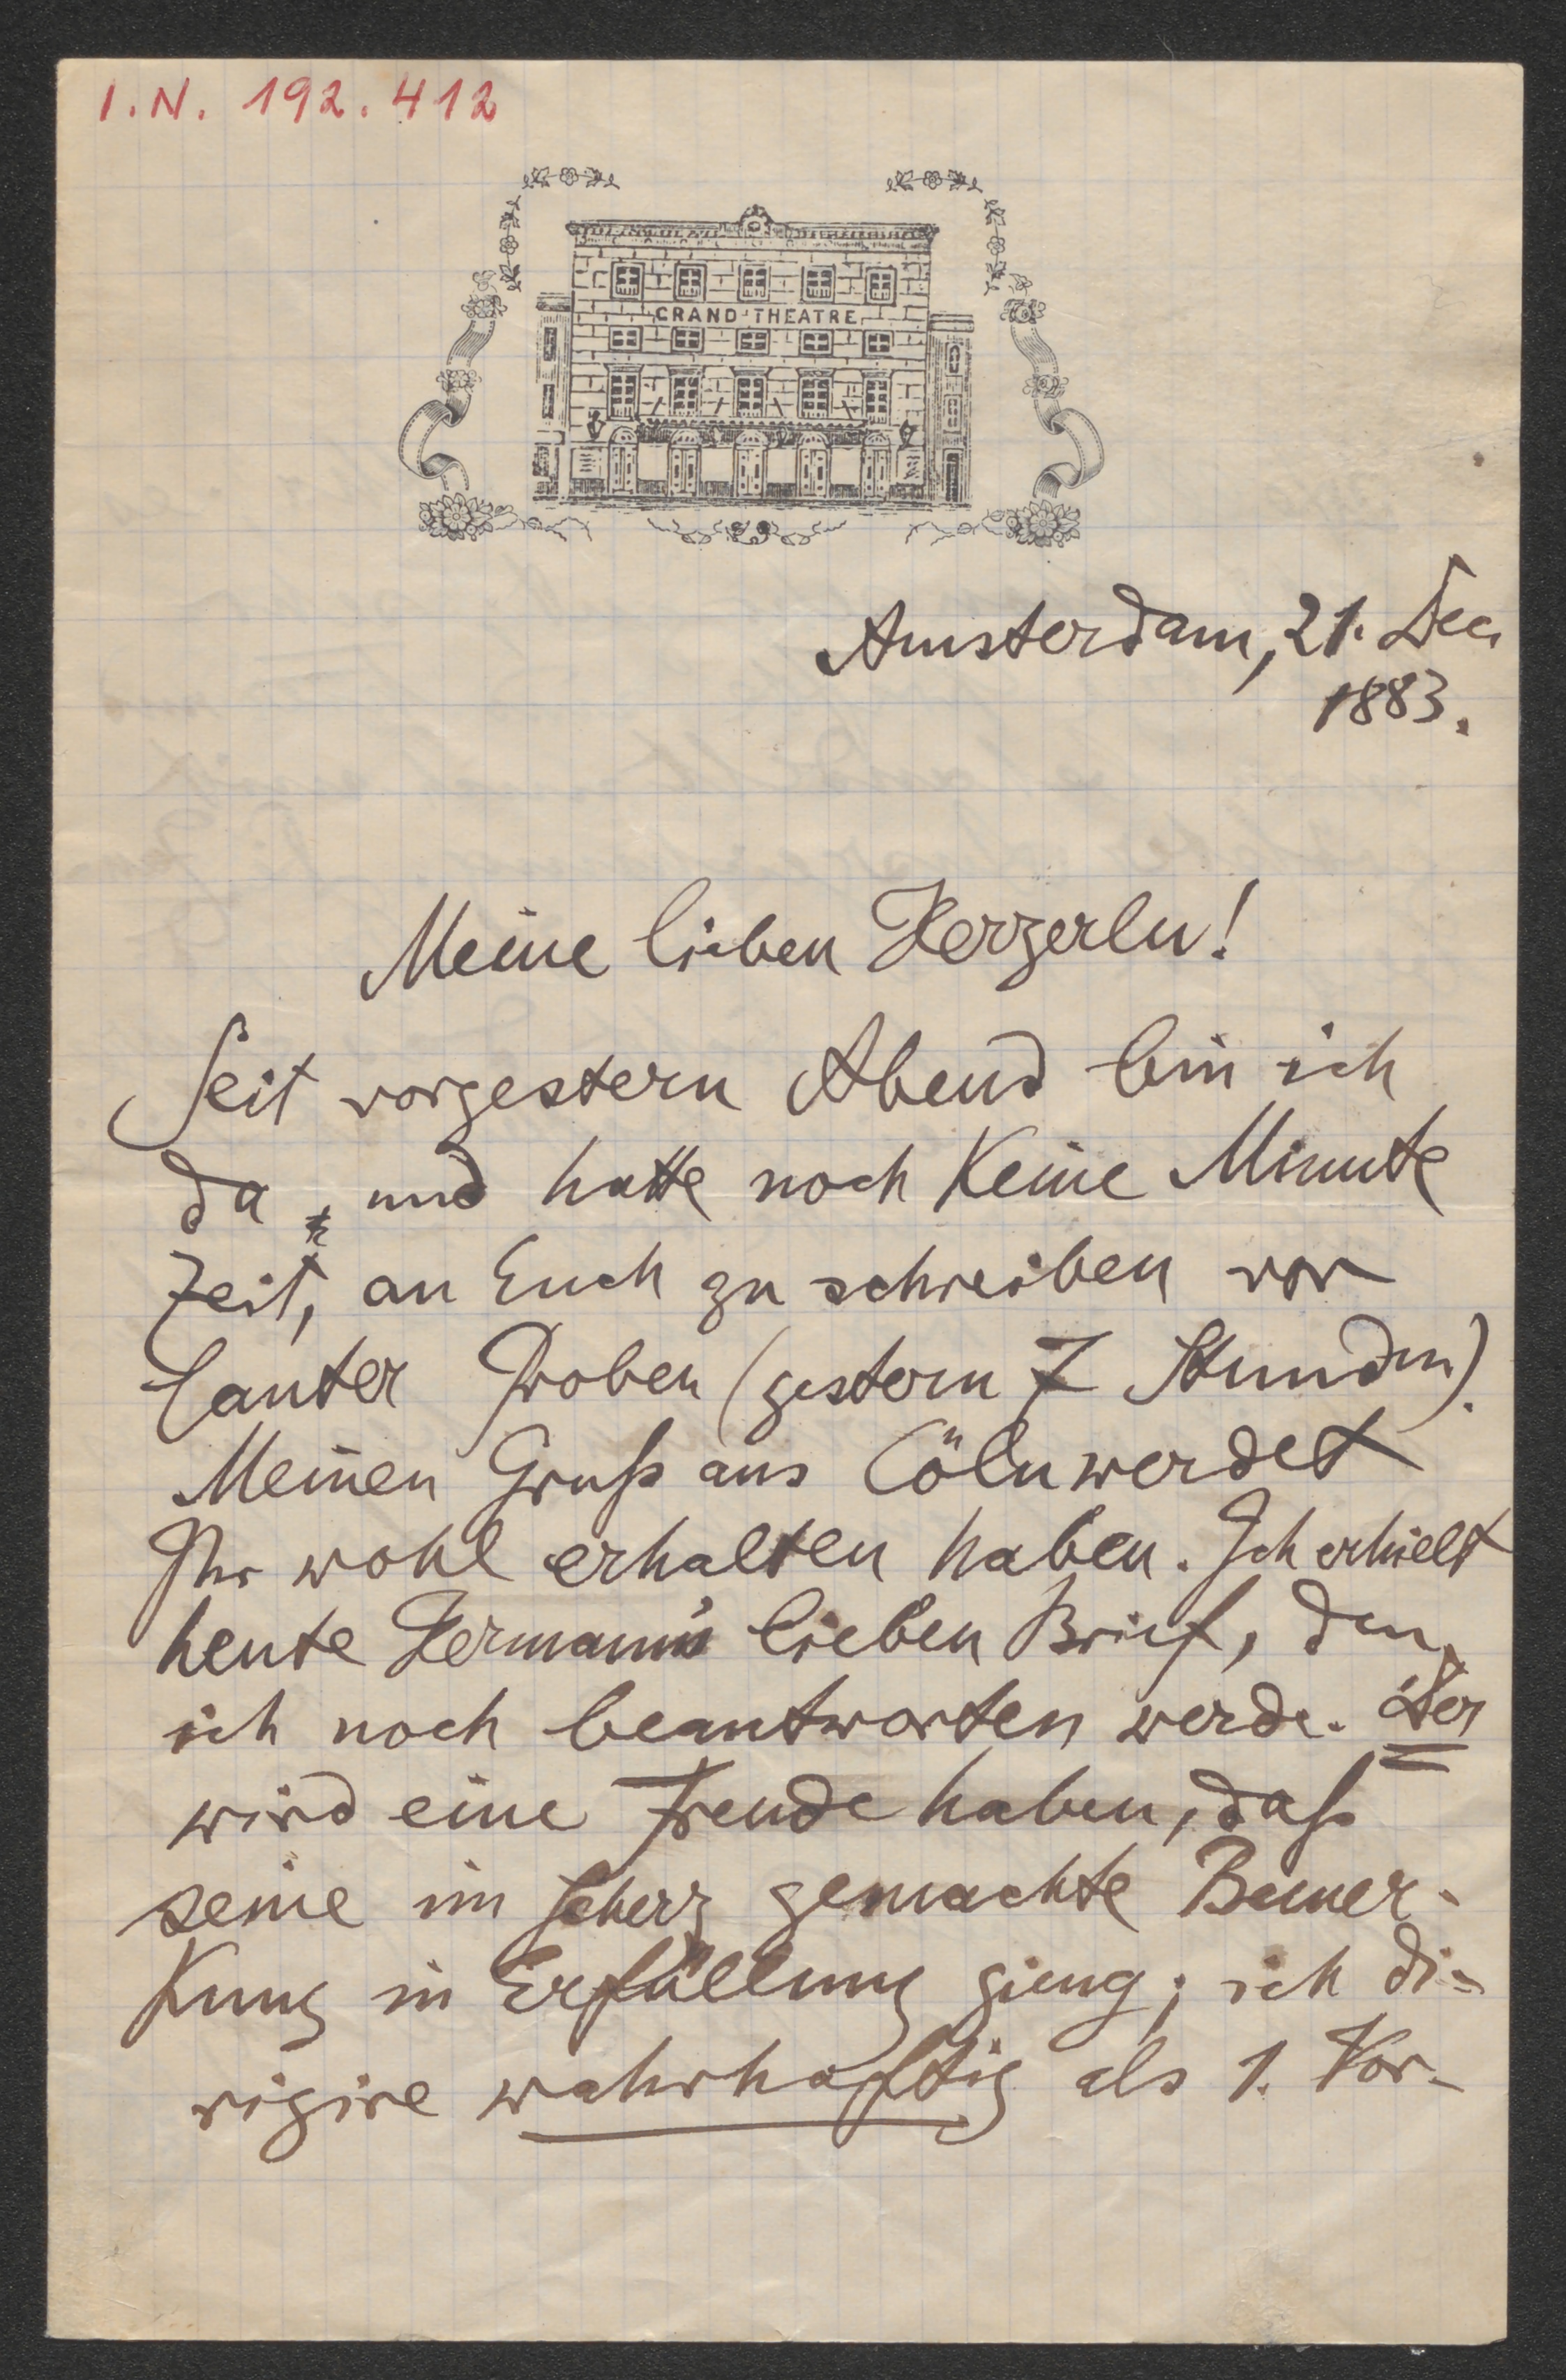 I.N. 192.412
GRAND THEATRE
Amsterdam, 21. Dec.
1883.
Meine lieben Herzerln!
Seit vorgestern Abend bin ich
da, und hatte noch keine Minute
Zeit, an Euch zu schreiben vor
lauter Proben (gestern 7 Stunden).
Meinen Gruß aus Cöln werdet
Ihr wohl erhalten haben. Ich erhielt
heute Hermann's lieben Brief, den
ich noch beantworten werde. Der
wird eine Freude haben, daß
seine im Scherz gemachte Bemer-
kung in Erfüllung gieng; ich di-
rigire wahrhaftig als 1. Vor-